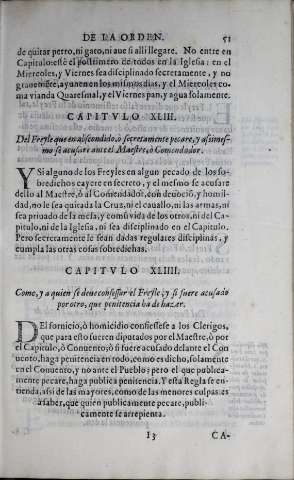 DE LA ORDEN. 51
de quitar perro, ni gato, ni aue si alli llegare. No entre en
Capitulo: esté el postrimero de todos en la Iglesia: en el
Miercoles, y Viernes sea disciplinado secretamente, y no
grauemēte, ayunen en los mismos dias, y el Miercoles co
ma vianda Quaresmal, y el Viernes pan, y agua solamente.
CAPITVLO XLIII.
Del Freyle que en ascondido, ò secretamente pecare, y assimes-
mo se acusare ante el Maestre, ò Comendador.
Y Si alguno de los Freyles en algun pecado de los so-
bredichos cayere en secreto, y el mesmo se acusare
dello al Maestre, ò al Comendador, con deuociō, y humil-
dad, no le sea quitada la Cruz, ni el cauallo, ni las armas, ni
sea priuado de la mesa, y comū vida de los otros, ni del Ca-
pitulo, ni de la Iglesia, ni sea disciplinado en el Capitulo.
Pero secretamente le sean dadas regulares disciplinas, y
cumpla las otras cosas sobredichas.
CAPITVLO XLIIII.
Como, y a quien se deue confessar el Freyle, y si fuere acusado
por otro, que penitencia ha de hazar.
DEl fornicio, ò homicidio confiessese a los Clerigos,
que para esto fueren diputados por el Maestre, ò por
el Capitulo, ò Conuento, ò si fuere acusado delante el Con
uento, haga penitencia en todo, como es dicho, solamente
en el Conuento, y no ante el Pueblo: pero el que publica-
mente pecare, haga publica penitencia. Y esta Regla se en-
tienda, assi de las mayores, como de las menores culpas: es
à saber, que quien publicamente pecare, publi-
camente se arrepienta.
I3 CA-